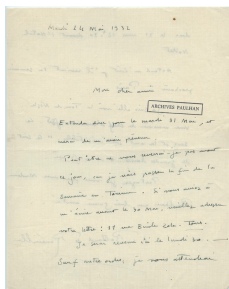 Mardi 24 Mai, 1932
Mon cher ami
ARCHIVES PAULHAN
Entendu donc pour le mardi 31 Mai, et
merci de m'avoir prévenu.
Peut-être ne vous reverrai-je pas avant
ce jour, car je vais passer la fin de la
semaine en Touraine. Si vous avez à
m'écrire avant le 30 Mai, veuillez adresser
votre lettre : 37 rue Emile Zola - Tours.
Je serai revenu chez moi lundi 30.
Sauf contre-ordre, je vous attendrai